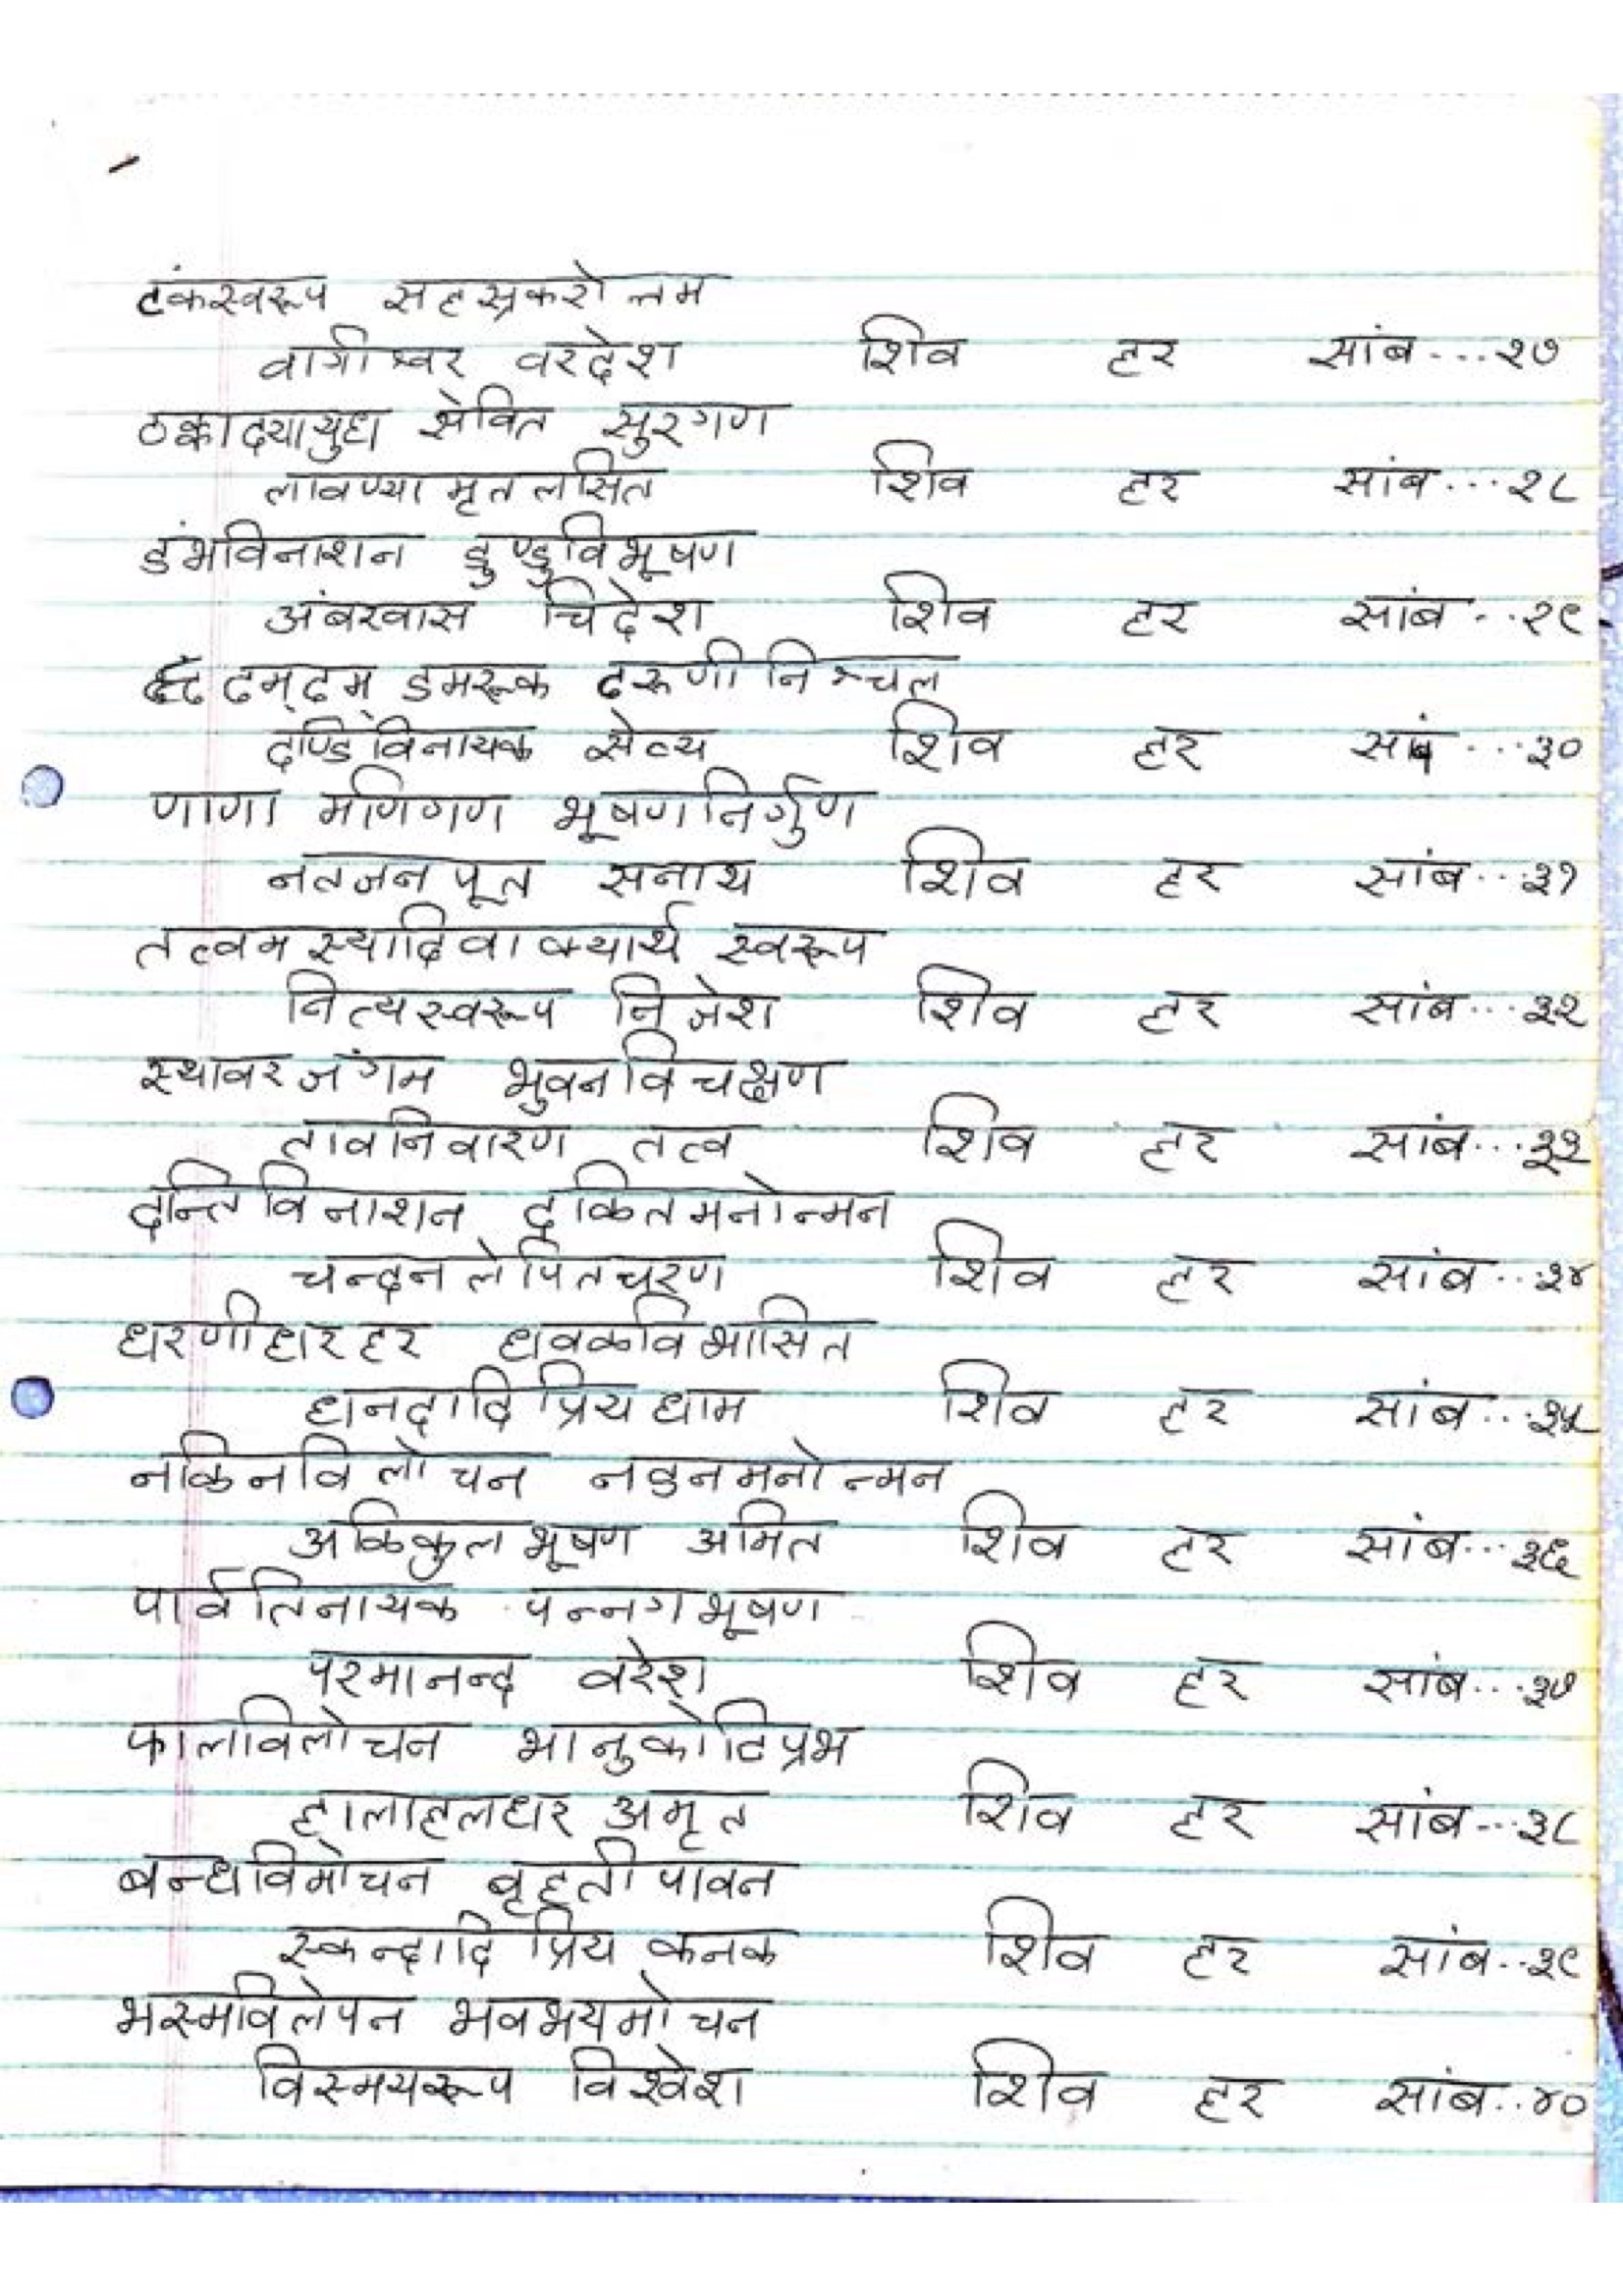 टंकस्वरूप सहस्रकरोत्तम
वागीश्वर वरदेश शिव हर सांब...२७
ठक्काद्यायुध सेवित सुरगण
लावण्यामृतलसित शिव हर सांब...२८
डंभविनाशन डुण्डुविभूषण
अंबरवास चिदेश शिव हर सांब...२९
ढम्ढम् डमरूक ढरुणीनिश्चल
ढुण्डिविनायक सेव्य शिव हर सांब...३०
णागा मणिगण भूषणनिर्गुण
नतजनपूत सनाथ शिव हर सांब...३१
तत्वमस्यादिवाक्यार्थ स्वरूप
नित्यस्वरूप निजेश शिव हर सांब...३२
स्थावरजंगम भुवनविचक्षण
तावनिवारण तत्व शिव हर सांब...३३
दन्तिविनाशन दळितमनोन्मन
चन्दनलेपितचरण शिव हर सांब...३४
धरणीधारहर धवळविभासित
धनदादिप्रियधाम शिव हर सांब...३५
नळिनविलोचन नवुनमनोन्मन
अळिकुलभूषण अमित शिव हर सांब...३६
पार्वतिनायक पन्नगभूषण
परमानन्द वरेश शिव हर सांब...३७
फालविलोचन भानुकोटिप्रभ
हालाहलधर अमृत शिव हर सांब...३८
बन्धविमोचन बृहती पावन
स्कन्दादिप्रिय कनक शिव हर सांब..३९
भस्मविलेपन भवभयमोचन
विस्मयरूप विश्वेश शिव हर सांब..४०